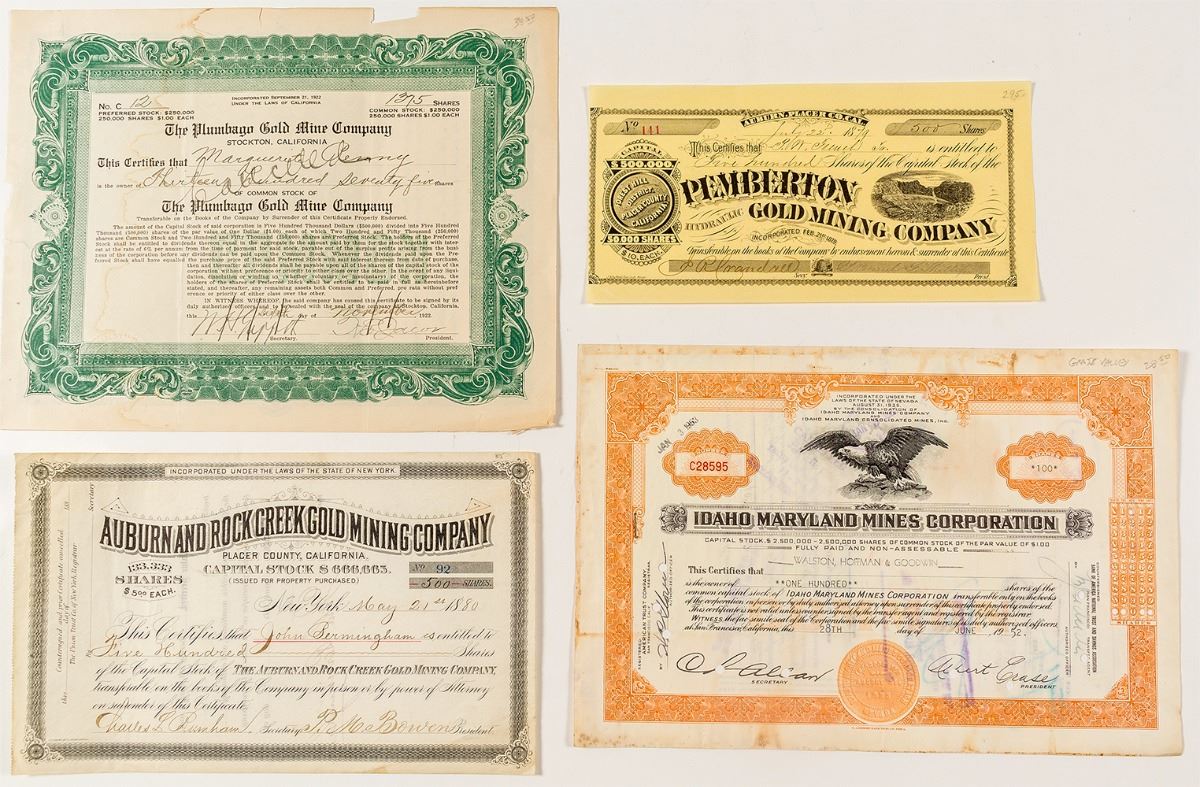 3853
INCORPORATED SEPTEMBER 21, 1922
UNDER THE LAWS OF CALIFORNIA
No. C 12
1375 SHARES
PREFERRED STOCK: $250,000
250,000 SHARES $1.00 EACH
COMMON STOCK: $250,000
250,000 SHARES $1.00 EACH
The Plumbago Gold Mine Company
STOCKTON, CALIFORNIA
This Certifies that
is the owner of Thirteen Hundred seventy five Shares
OF COMMON STOCK OF
The Plumbago Gold Mine Company
Transferable on the Books of the Company by Surrender of this Certificate Properly Endorsed.
The amount of the Capital Stock of said corporation is Five Hundred Thousand Dollars ($500,000) divided into Five Hundred
Thousand (500,000) shares of the par value of One Dollar ($1.00) each, of which Two Hundred and Fifty Thousand (250,000)
shares are Common Stock and Two Hundred and Fifty Thousand (250,000) shares Preferred Stock. The holders of the Preferred
Stock shall be entitled to dividends thereon equal in the aggregate to the amount paid by them for the stock together with inter-
est at the rate of 6% per annum from the time of payment for said stock, payable out of the surplus profits arising from the busi-
ness of the corporation before any dividends can be paid upon the Common Stock. Whenever the dividends paid upon the Pre-
ferred Stock shall have equalled the purchase price of the Preferred Stock with said interest thereon from date of purchase,
then and thereafter all dividends shall be payable upon all of the shares of the capital stock of the
corporation without preference or priority to either class over the other. In the event of any liqui-
dation, dissolution or winding up (whether voluntary or involuntary) of the corporation, the
holders of the shares of Preferred Stock shall be entitled to be paid in full as hereinbefore
stated, and thereafter, any remaining assets both Common and Preferred, pro rata without pref-
erence or priority of either class over the other.
IN WITNESS WHEREOF, the said company has caused this certificate to be signed by its
duly authorized officers and to be sealed with the seal of the company at Stockton, California,
this day of November 1922.
Secretary. President.
295
AUBURN, PLACER CO. CAL.
No 141
July 25th 1879
500 Shares
This Certifies that is entitled to
Five hundred Shares of the Capital Stock of the
CAPITAL
$500,000
GOLD HILL
DISTRICT,
PLACER COUNTY
CALIFORNIA.
50,000 SHARES
$10. EACH.
PEMBERTON
HYDRAULIC GOLD MINING COMPANY
INCORPORATED FEB. 21st 1879.
Transferable on the books of the Company by endorsement hereon & surrender of this Certificate
Secy Prest
INCORPORATED UNDER THE LAWS OF THE STATE OF NEW YORK
AUBURN AND ROCK CREEK GOLD MINING COMPANY
PLACER COUNTY, CALIFORNIA.
133,333
SHARES
$5.00 EACH.
CAPITAL STOCK $666,665.
(ISSUED FOR PROPERTY PURCHASED)
No 92
500 SHARES.
New York May 21st 1880
This Certifies that John Bermingham is entitled to
Five Hundred Shares
of the Capital Stock of THE AUBURN AND ROCK CREEK GOLD MINING COMPANY,
transferable on the books of the Company in person or by power of Attorney
on surrender of this Certificate.
Charles L. Burnham Secretary P. McBowen President.
Countersigned and prior certificate cancelled
this day of 188
The Union Trust Co. of New York, Registrar
Secretary
GRASS VALLEY
INCORPORATED UNDER THE
LAWS OF THE STATE OF NEVADA
AUGUST 31, 1935
BY THE CONSOLIDATION OF
IDAHO MARYLAND MINES COMPANY
AND
IDAHO MARYLAND CONSOLIDATED MINES, INC.
C28595
*100*
IDAHO MARYLAND MINES CORPORATION
CAPITAL STOCK $2,500,000 - 2,500,000 SHARES OF COMMON STOCK OF THE PAR VALUE OF $1.00
FULLY PAID AND NON-ASSESSABLE
This Certifies that
WALSTON, HOFFMAN & GOODWIN
is the owner of **ONE HUNDRED** shares of the
common capital stock of IDAHO MARYLAND MINES CORPORATION transferable only on the books of
the corporation in person or by duly authorized attorney upon surrender of this certificate properly endorsed.
This certificate is not valid unless countersigned by the transfer agent and registered by the registrar.
WITNESS the fac simile seal of the Corporation and the fac simile signatures of its duly authorized officers,
at San Francisco, California, this 28TH day of JUNE 1952.
SECRETARY
Albert Crase
PRESIDENT